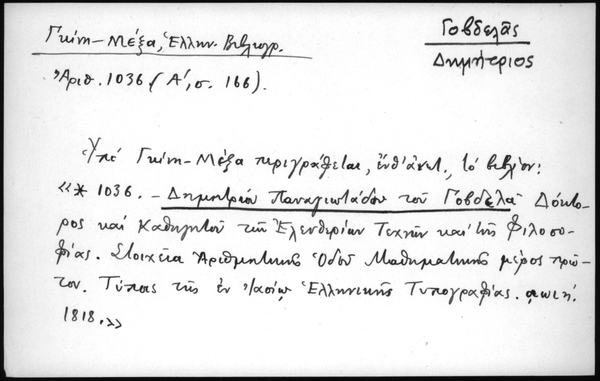 Γκίνη-Μέξα, Ἑλλην. Βιβλιογρ.
Γοβδελᾶς
Δημήτριος
Ἀριθ. 1036 (Α', σ. 166).
Ὑπό Γκίνη-Μέξα περιγράφεται, ἔνθ' ἀνωτ., τό βιβλίον:
«* 1036. – Δημητρίου Παναγιωτάδου τοῦ Γοβδελᾶ Δόκτο-
ρος καί Καθηγητοῦ τῶν Ἐλευθερίων Τεχνῶν καί τῆς Φιλοσο-
φίας. Στοιχεῖα Ἀριθμητικῆς Ὁδοῦ Μαθηματικῆς μέρος πρῶ-
τον. Τύποις τῆς ἐν Ἰασίῳ Ἑλληνικῆς Τυπογραφίας. αωιή.
1818.»